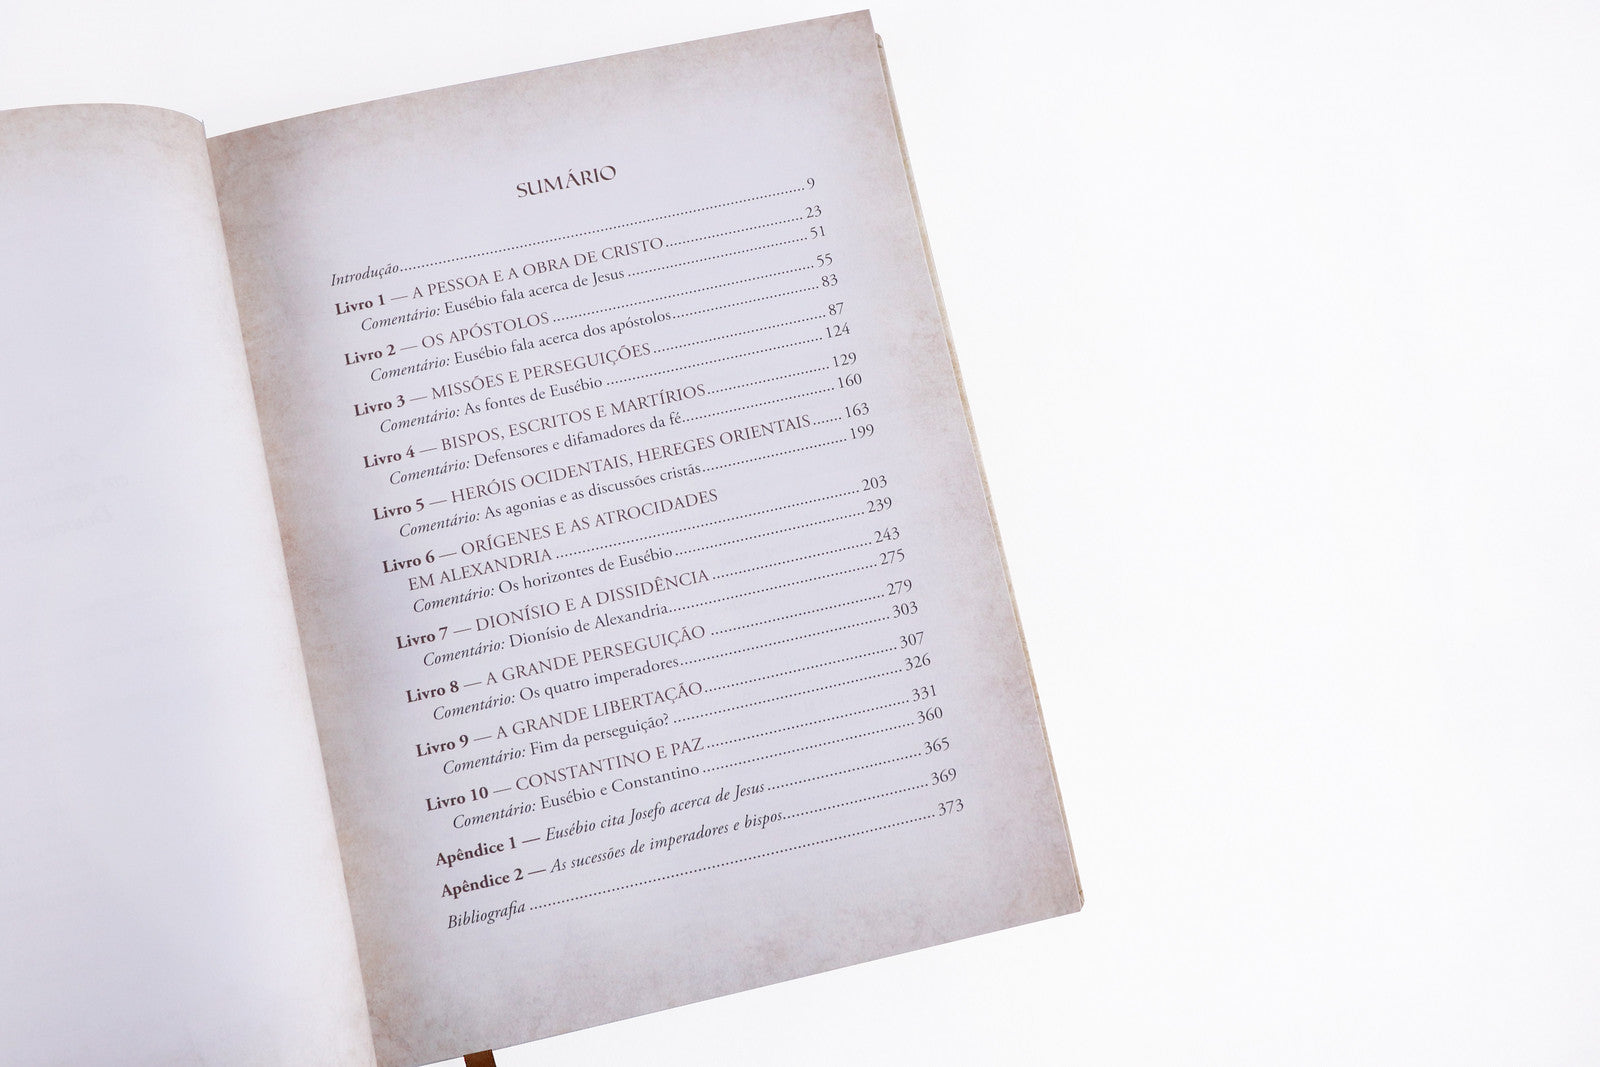 SUMÁRIO
Introdução.......... 9
Livro 1 — A PESSOA E A OBRA DE CRISTO.......... 23
Comentário: Eusébio fala acerca de Jesus .......... 51
Livro 2 — OS APÓSTOLOS .......... 55
Comentário: Eusébio fala acerca dos apóstolos.......... 83
Livro 3 — MISSÕES E PERSEGUIÇÕES.......... 87
Comentário: As fontes de Eusébio .......... 124
Livro 4 — BISPOS, ESCRITOS E MARTÍRIOS.......... 129
Comentário: Defensores e difamadores da fé.......... 160
Livro 5 — HERÓIS OCIDENTAIS, HEREGES ORIENTAIS....... 163
Comentário: As agonias e as discussões cristãs.......... 199
Livro 6 — ORÍGENES E AS ATROCIDADES
EM ALEXANDRIA .......... 203
Comentário: Os horizontes de Eusébio.......... 239
Livro 7 — DIONÍSIO E A DISSIDÊNCIA .......... 243
Comentário: Dionísio de Alexandria.......... 275
Livro 8 — A GRANDE PERSEGUIÇÃO .......... 279
Comentário: Os quatro imperadores.......... 303
Livro 9 — A GRANDE LIBERTAÇÃO.......... 307
Comentário: Fim da perseguição? .......... 326
Livro 10 — CONSTANTINO E PAZ.......... 331
Comentário: Eusébio e Constantino .......... 360
Apêndice 1 — Eusébio cita Josefo acerca de Jesus .......... 365
Apêndice 2 — As sucessões de imperadores e bispos.......... 369
Bibliografia .......... 373